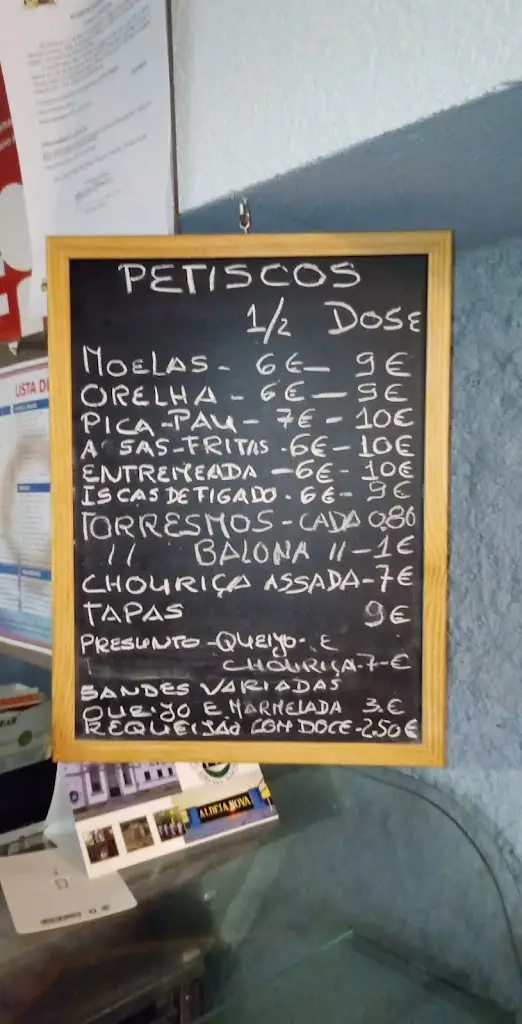 LISTA D
PETISCOS
1/2 DOSE
MOELAS - 6€ - 9€
ORELHA - 6€ - 9€
PICA-PAU - 7€ - 10€
ASAS-FRITAS - 6€ - 10€
ENTREMEADA - 6€ - 10€
ISCAS DE FIGADO - 6€ - 9€
TORRESMOS - CADA 0,80
// BALONA // - 1€
CHOURIÇA ASSADA - 7€
TAPAS 9€
PRESUNTO - QUEIJO - E
CHOURIÇA - 7 - €
SANDES VARIADAS
QUEIJO E MARMELADA 3.€
REQUEIJÃO COM DOCE - 2.50€
ALDEIA NOVA